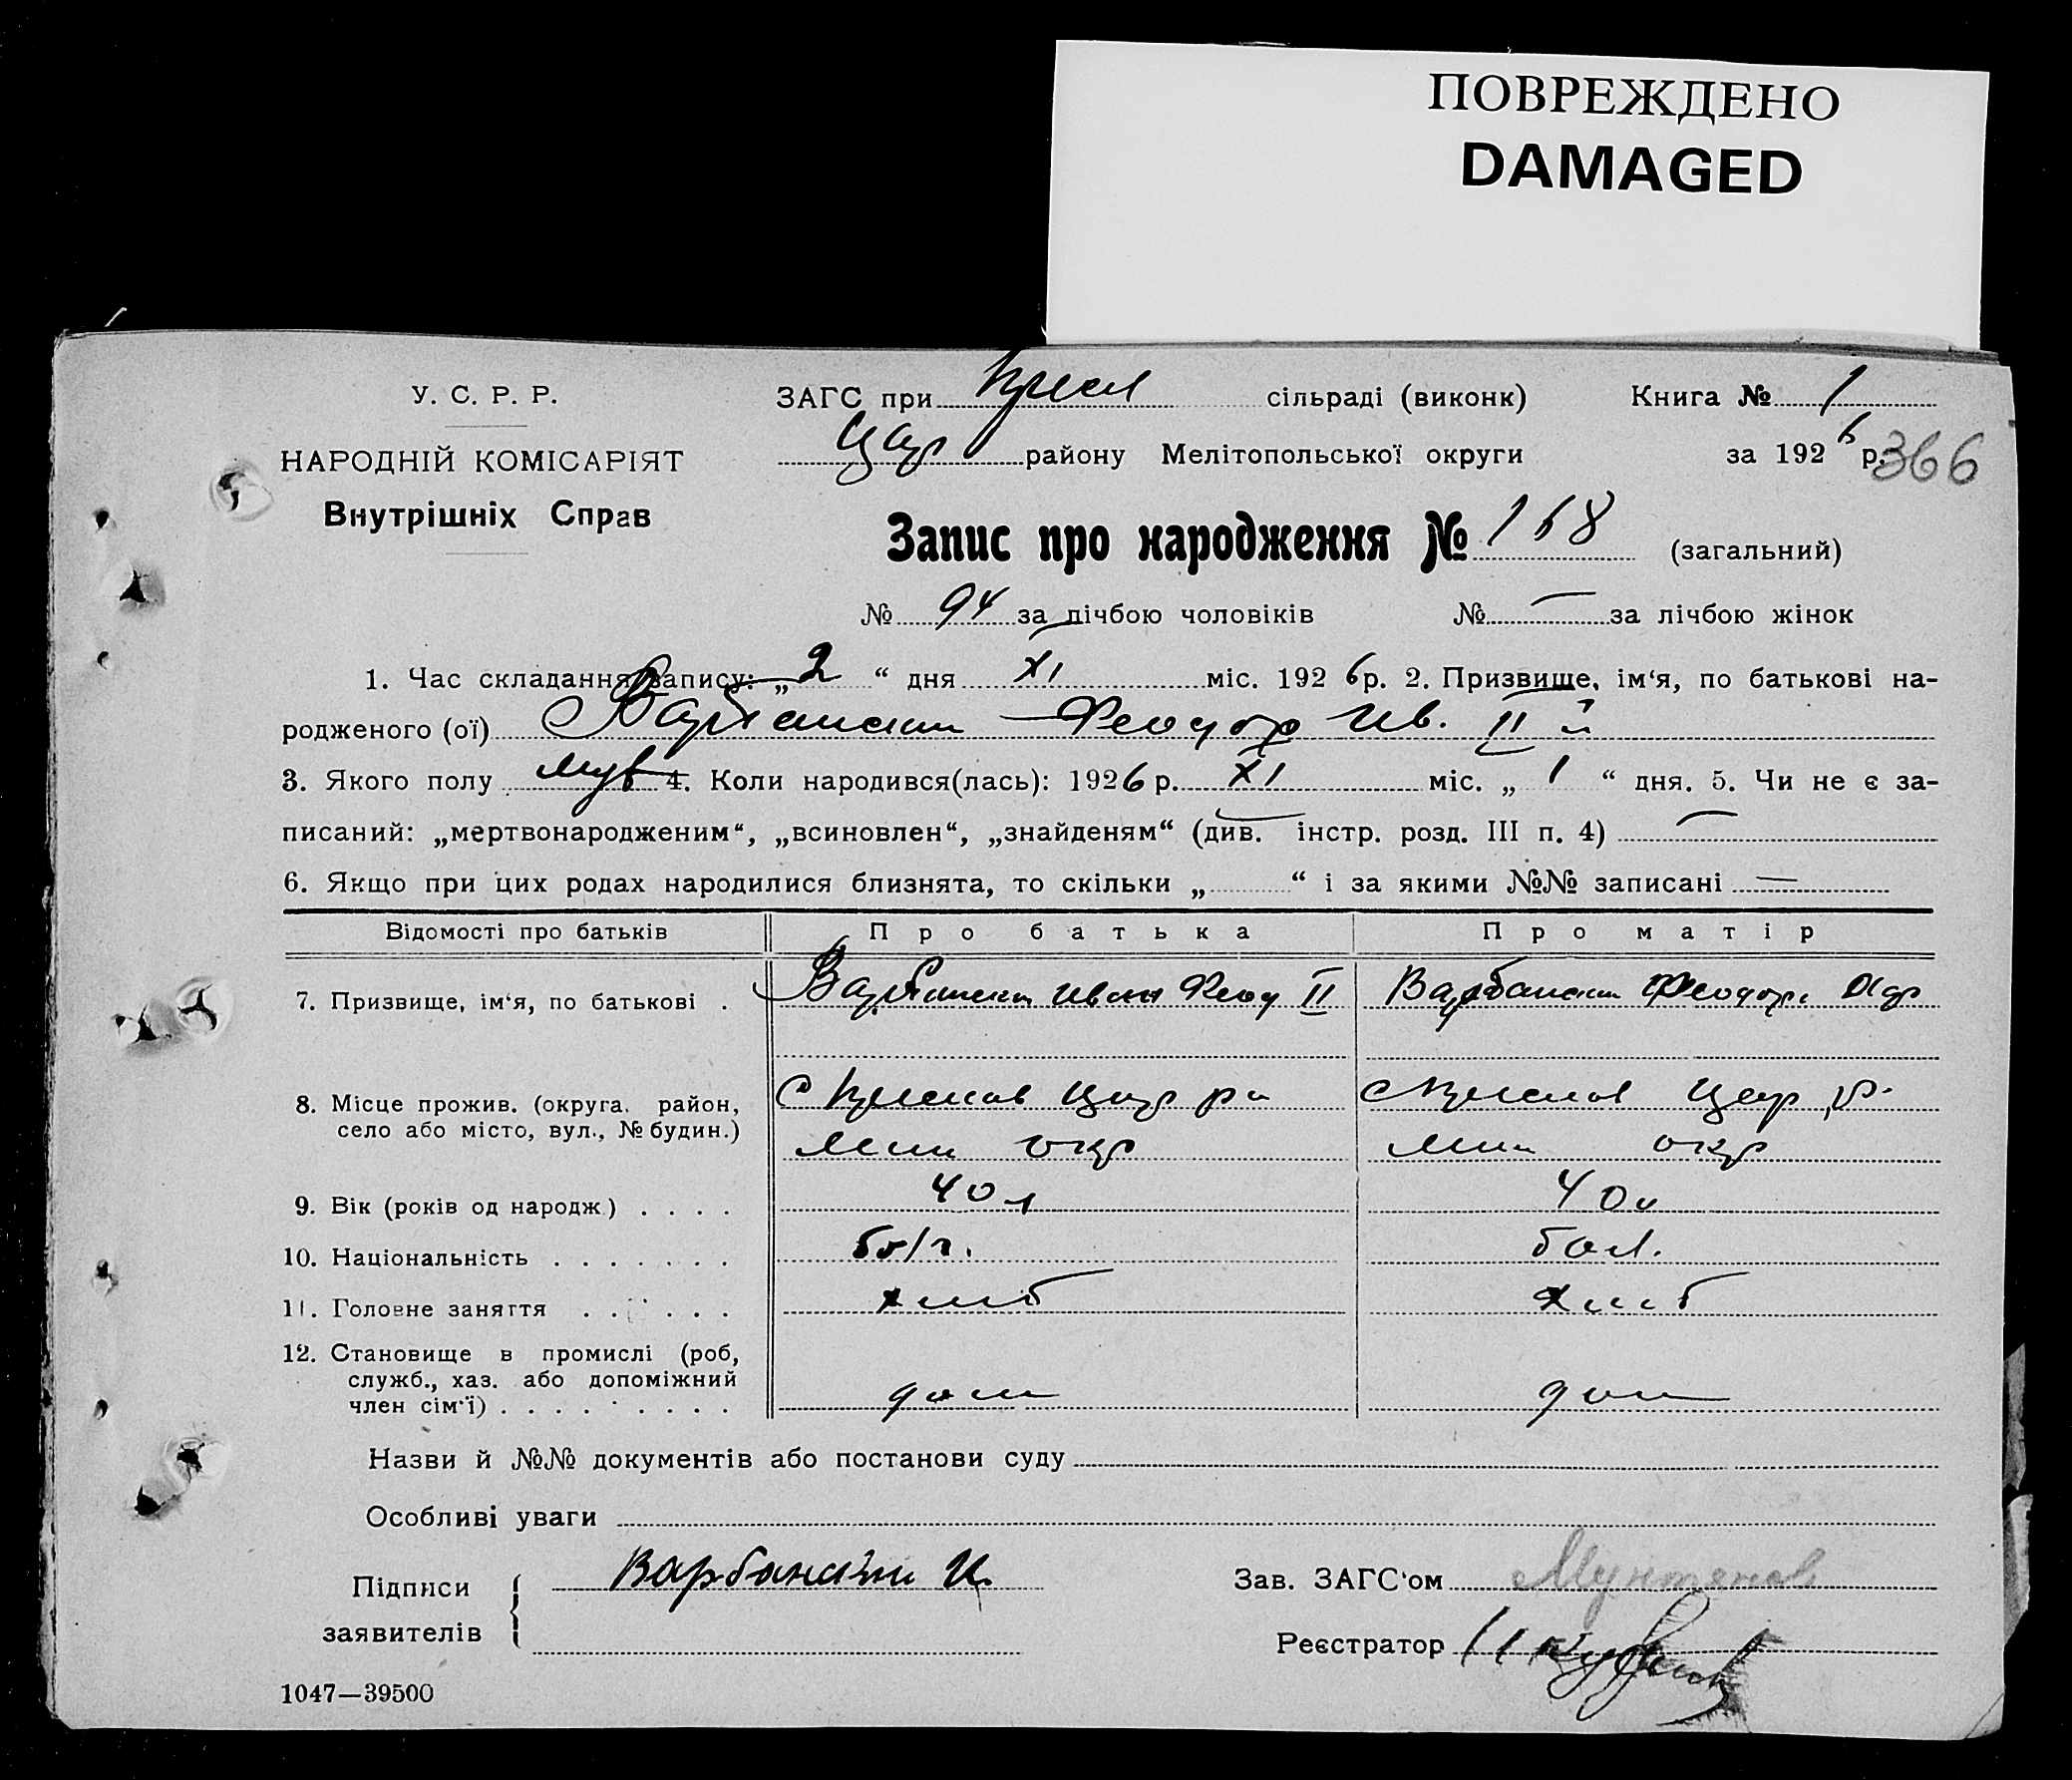 ПОВРЕЖДЕНО
DAMAGED
У. С. Р. Р.
НАРОДНІЙ КОМІСАРІЯТ
Внутрішніх Справ
ЗАГС при сільраді (виконк) Книга № 1
Цар району Мелітопольської округи за 1926 р. 366
Запис про народження № 168 (загальний)
№ 94 за лічбою чоловіків № — за лічбою жінок
1. Час складання запису: „2“ дня XI міс. 1926 р. 2. Призвище, ім‘я, по батькові на-
родженого (ої) Варбански Феодор Ив. II й
3. Якого полу муж 4. Коли народився(лась): 1926 р. XI міс. „1“ дня. 5. Чи не є за-
писаний: „мертвонародженим“, „всиновлен“, „знайденям“ (див. інстр. розд. III п. 4) —
6. Якщо при цих родах народилися близнята, то скільки „ “ і за якими №№ записані —
Відомості про батьків Про батька Про матір
7. Призвище, ім‘я, по батькові . Варбански Иван Феод II Варбански Феодора
8. Місце прожив. (округа, район, с Цар р с Цар р.
село або місто, вул., № будин.) окр окр
9. Вік (років од народж) . . . . 40 л 40
10. Національність . . . . . . . болг. бол.
11. Головне заняття . . . . . . хлиб хлиб
12. Становище в промислі (роб,
служб., хаз. або допоміжний
член сім‘ї) . . . . . . . . . дом дом
Назви й №№ документів або постанови суду
Особливі уваги
Підписи Варбански И. Зав. ЗАГС‘ом Мунтянов
заявителів Реєстратор
1047—39500